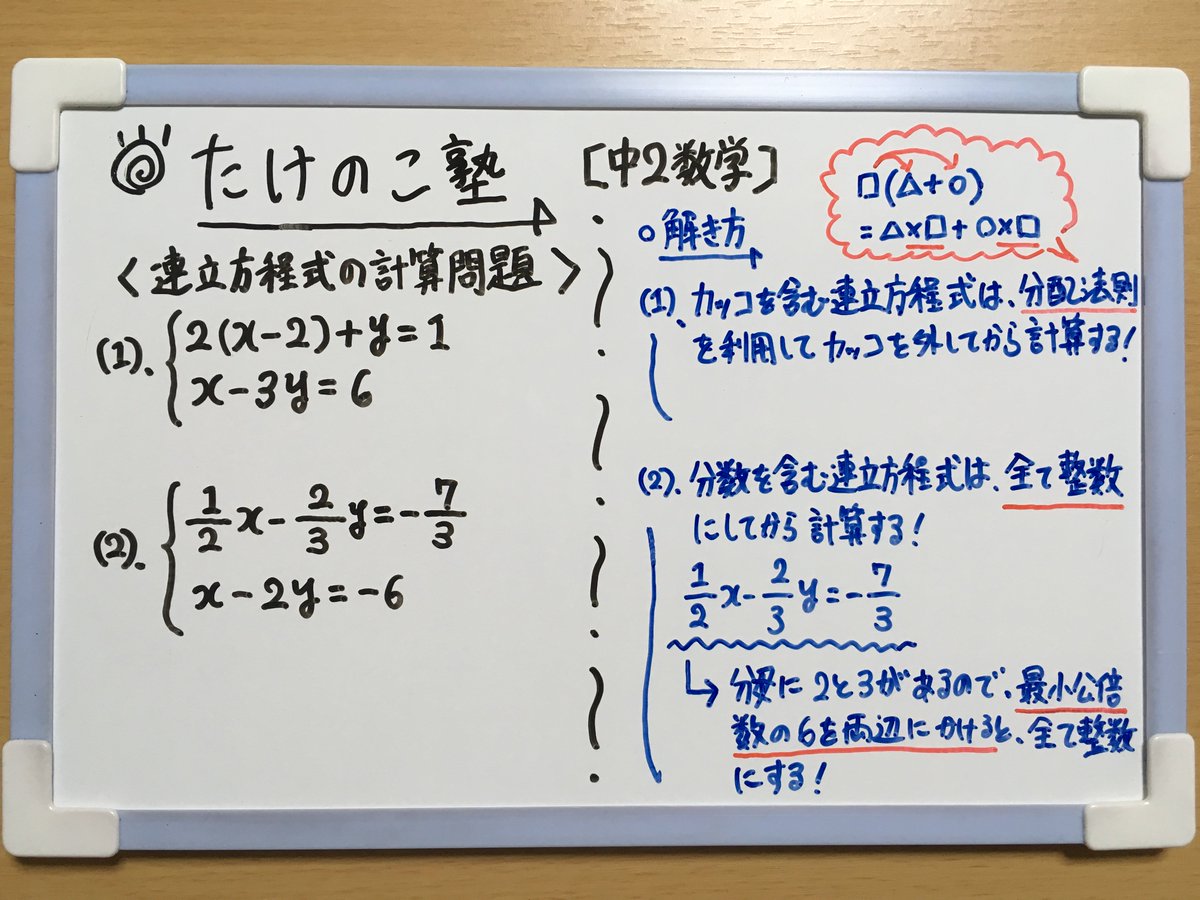 たけのこ塾
[中2数学]
<連立方程式の計算問題>
(1). { 2(x-2)+y=1
x-3y=6
(2). { 1/2 x - 2/3 y = - 7/3
x-2y=-6
□(△+○)
=△×□+○×□
○解き方
(1). カッコを含む連立方程式は、分配法則
を利用してカッコを外してから計算する!
(2). 分数を含む連立方程式は、全て整数
にしてから計算する!
1/2 x - 2/3 y = - 7/3
↳分母に2と3があるので、最小公倍
数の6を両辺にかけると、全て整数
にする!